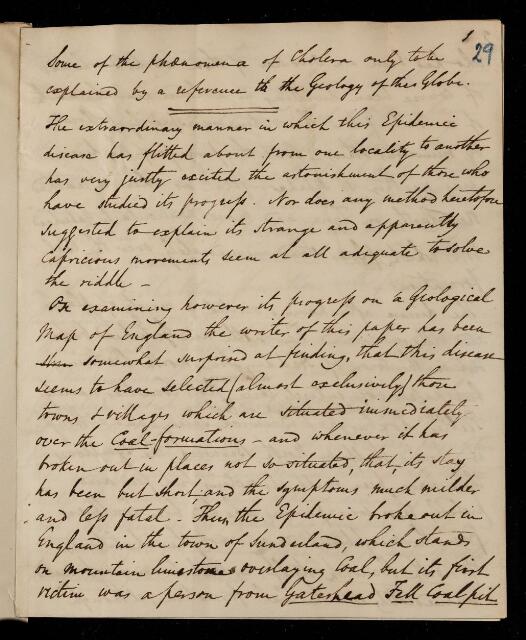 1
29
Some of the phænomena of Cholera only to be
explained by a reference to the Geology of this Globe.
The extraordinary manner in which this Epidemic
disease has flitted about from one locality to another
has very justly excited the astonishment of those who
have studied its progress. Nor does any method heretofore
suggested to explain its strange and apparently
Capricious movements seem at all adequate to solve
the riddle -
On examining however its progress on a Geological
Map of England the writer of this paper has been
somewhat surprised at finding, that this disease
seems to have selected (almost exclusively) those
towns & villages which are situated immediately
over the Coal-formations - and whenever it has
broken out in places not so situated, that, its stay
has been but short, and the symptoms much milder
and less fatal - Thus, the Epidemic broke out in
England in the town of Sunderland, which stands
on mountain limestone overlaying Coal, but its first
victim was a person from Gateshead Fell Coal pit